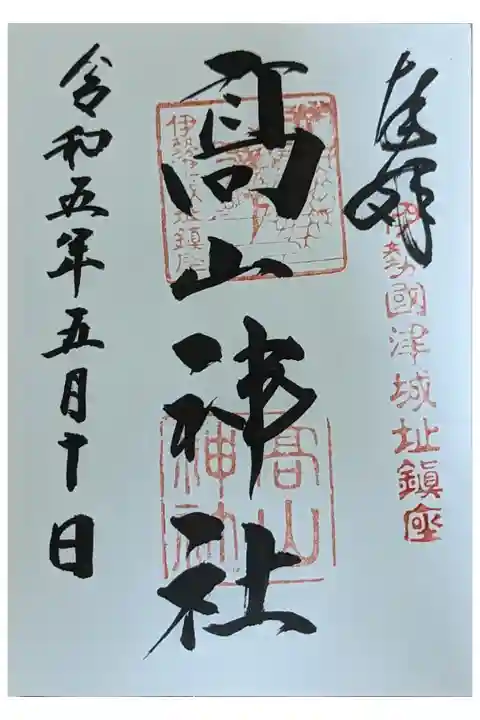 奉拝
伊勢國津城址鎮座
髙山神社
伊勢津城址鎮座
髙山神社
令和五年五月十日